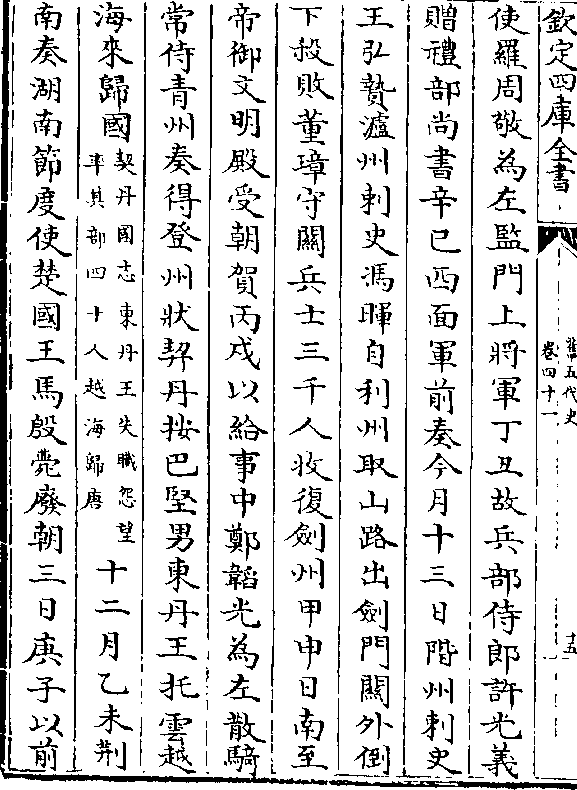 欽定四庫全書
舊五代史
卷四十一
十五
使羅周敬為左監門上將軍丁丑故兵部侍郎許光義
贈禮部尚書辛巳西面軍前奏今月十三日階州刺史
王弘贄瀘州刺史馮暉自利州取山路出劍門關外倒
下殺敗董璋守關兵士三千人收復劍州甲申日南至
帝御文明殿受朝賀丙戌以給事中鄭韜光為左散騎
常侍青州奏得登州狀契丹按巴堅男東丹王托雲越
海來歸國契丹國志東丹王失職怨望率其部四十人越海歸唐十二月乙未荆
南奏湖南節度使楚國王馬殷薨廢朝三日庚子以前